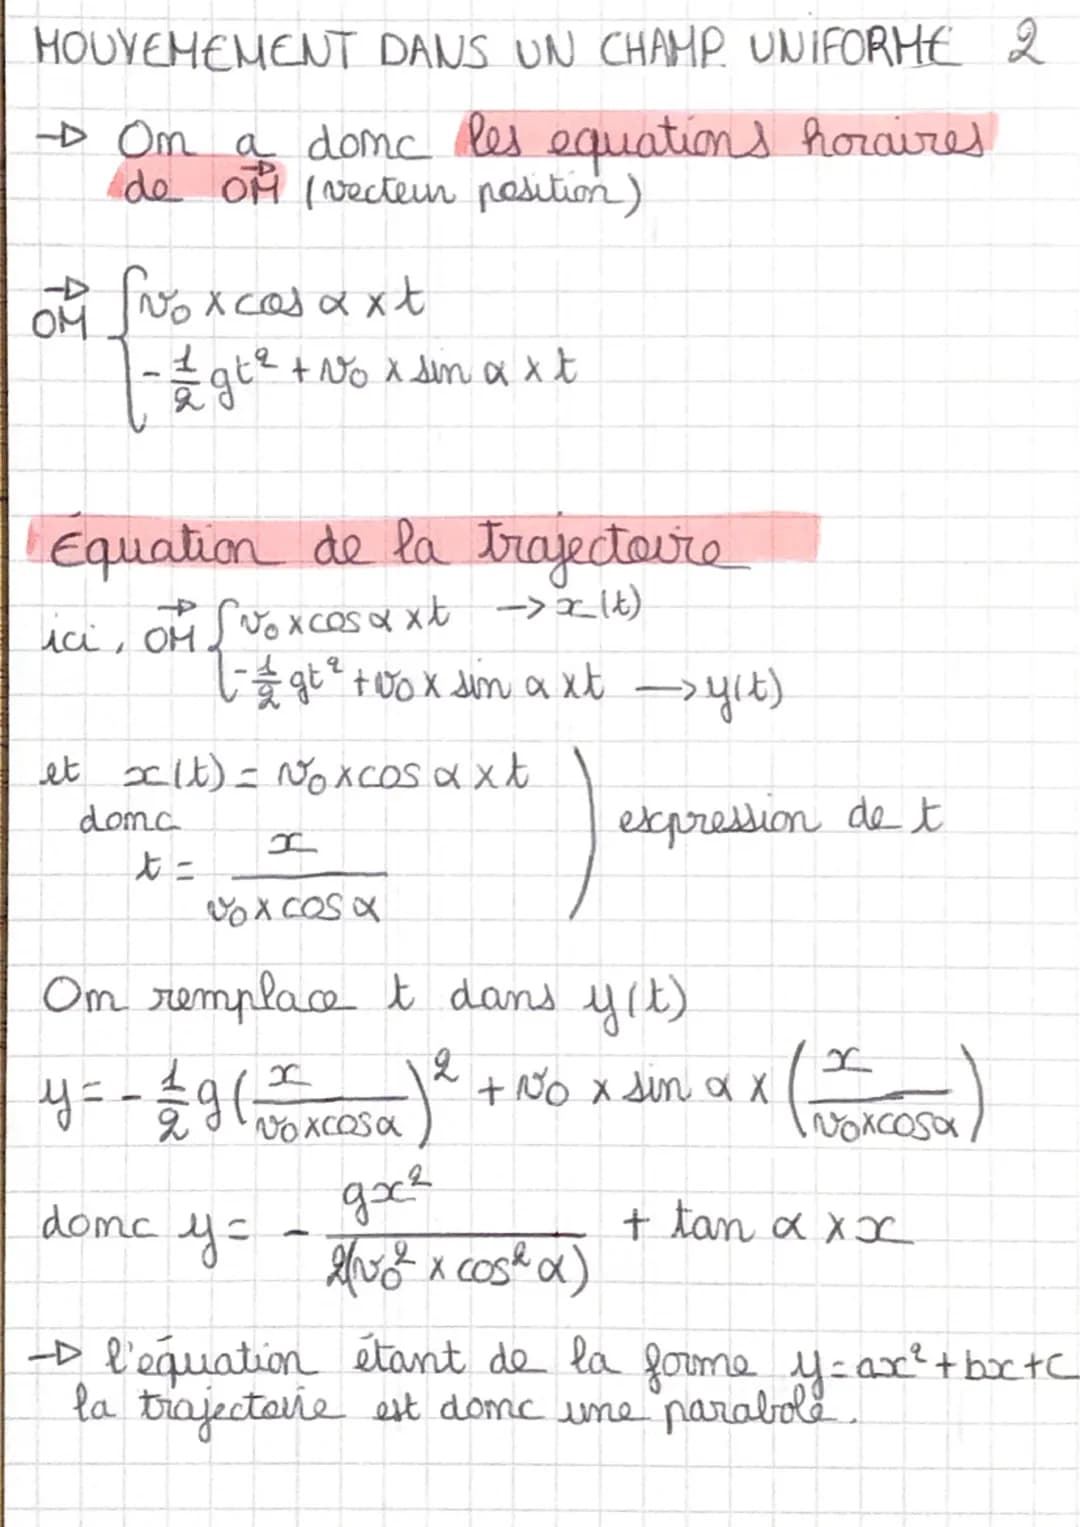 MOUVEMEMENT DANS UN CHAMP UNIFORME 2
→ On a donc les equations horaires
de OM⃗ (vecteur position)
OM⃗ { v₀ x cos α x t
-1/2 gt² + v₀ x sin α x t
Équation de la trajectoire
ici, OM⃗ { v₀ x cos α x t → x(t)
-1/2 gt² + v₀ x sin α x t → y(t)
et x(t) = v₀ x cos α x t
donc
expression de t
t = x / (v₀ x cos α)
On remplace t dans y(t)
y = -1/2 g (x / (v₀ x cos α))² + v₀ x sin α x (x / (v₀ x cos α))
donc y = - gx² / 2(v₀² x cos² α) + tan α x x
→ l'équation étant de la forme y = ax² + bx + c
la trajectoire est donc une parabole.